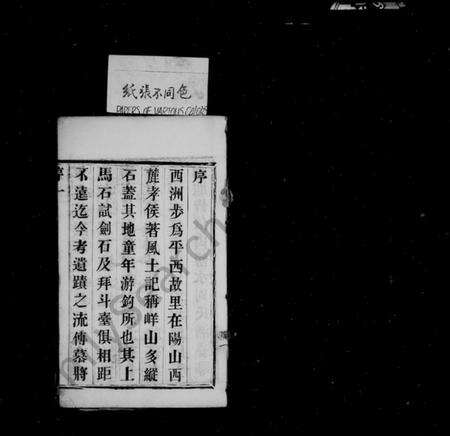 紙張不同色
PAPERS OF VARIOUS COLORS
序
西洲步爲平西故里在陽山西
麓孝侯著風土記稱峚山多縱
石蓋其地童年游釣所也其上
馬石試劍石及拜斗臺俱相距
不遠迄今考遺蹟之流傳慕將
序一